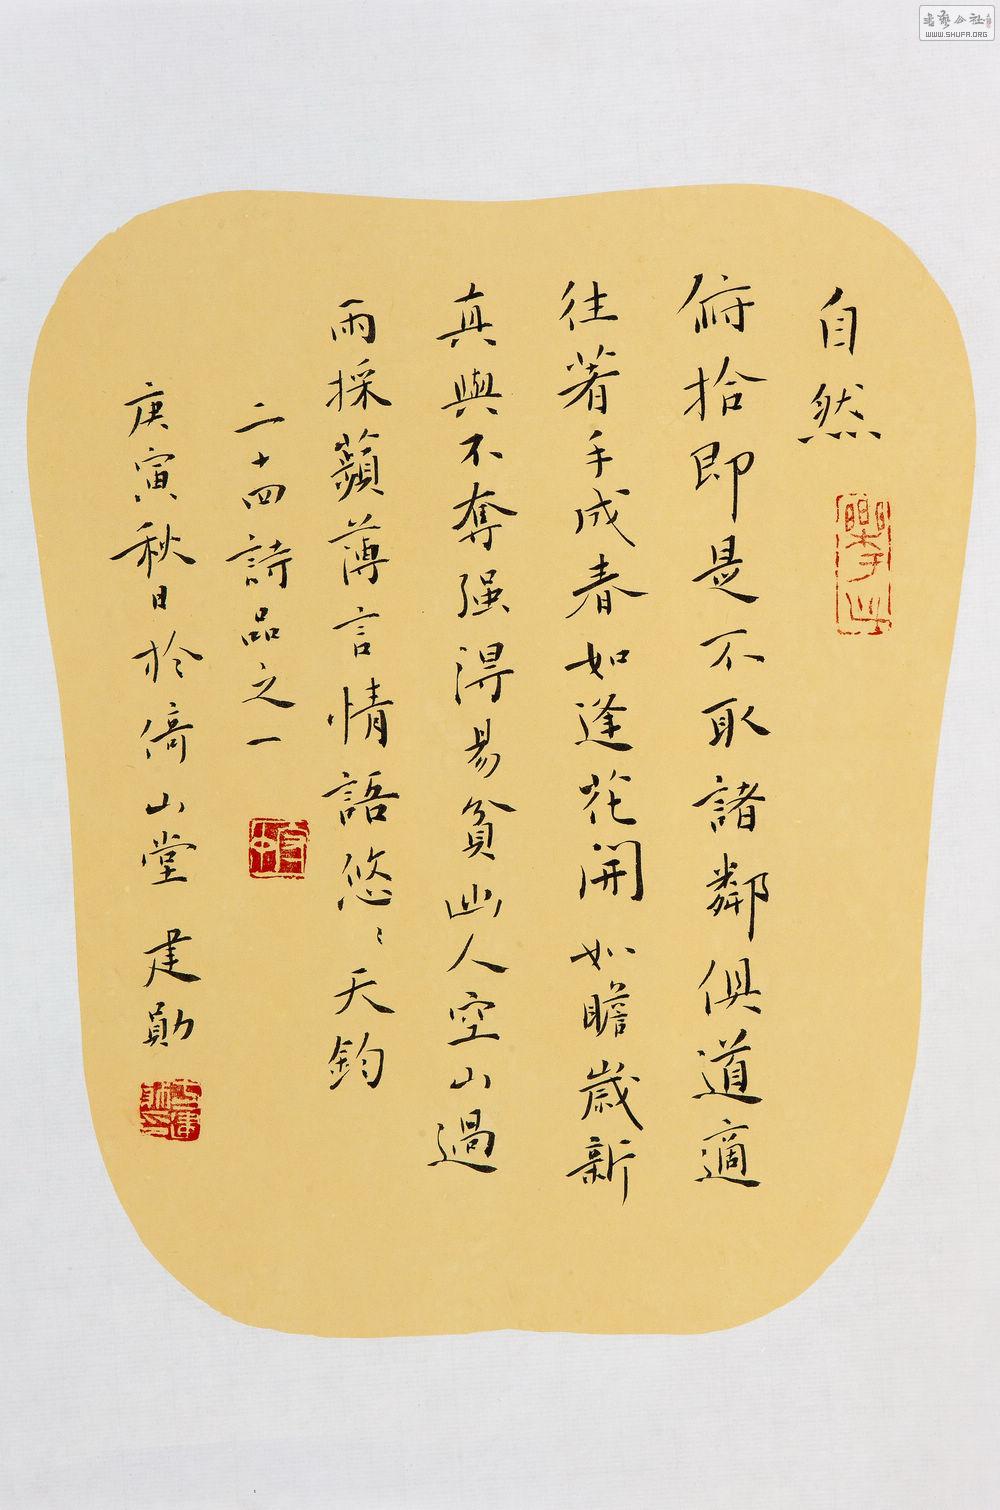 自然
俯拾即是不取諸鄰俱道適
往著手成春如逢花開如瞻歲新
真與不奪强得易貧幽人空山過
雨採蘋薄言情語悠〻天鈞
二十四詩品之一
庚寅秋日於倚山堂 建勛
WWW.SHUFA.ORG